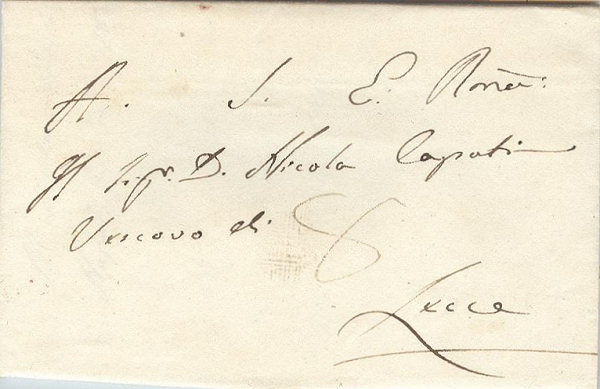 A. S. E. Roma:
Il Sigr. D. Nicola Caputi
Vescovo di
8
Lecce